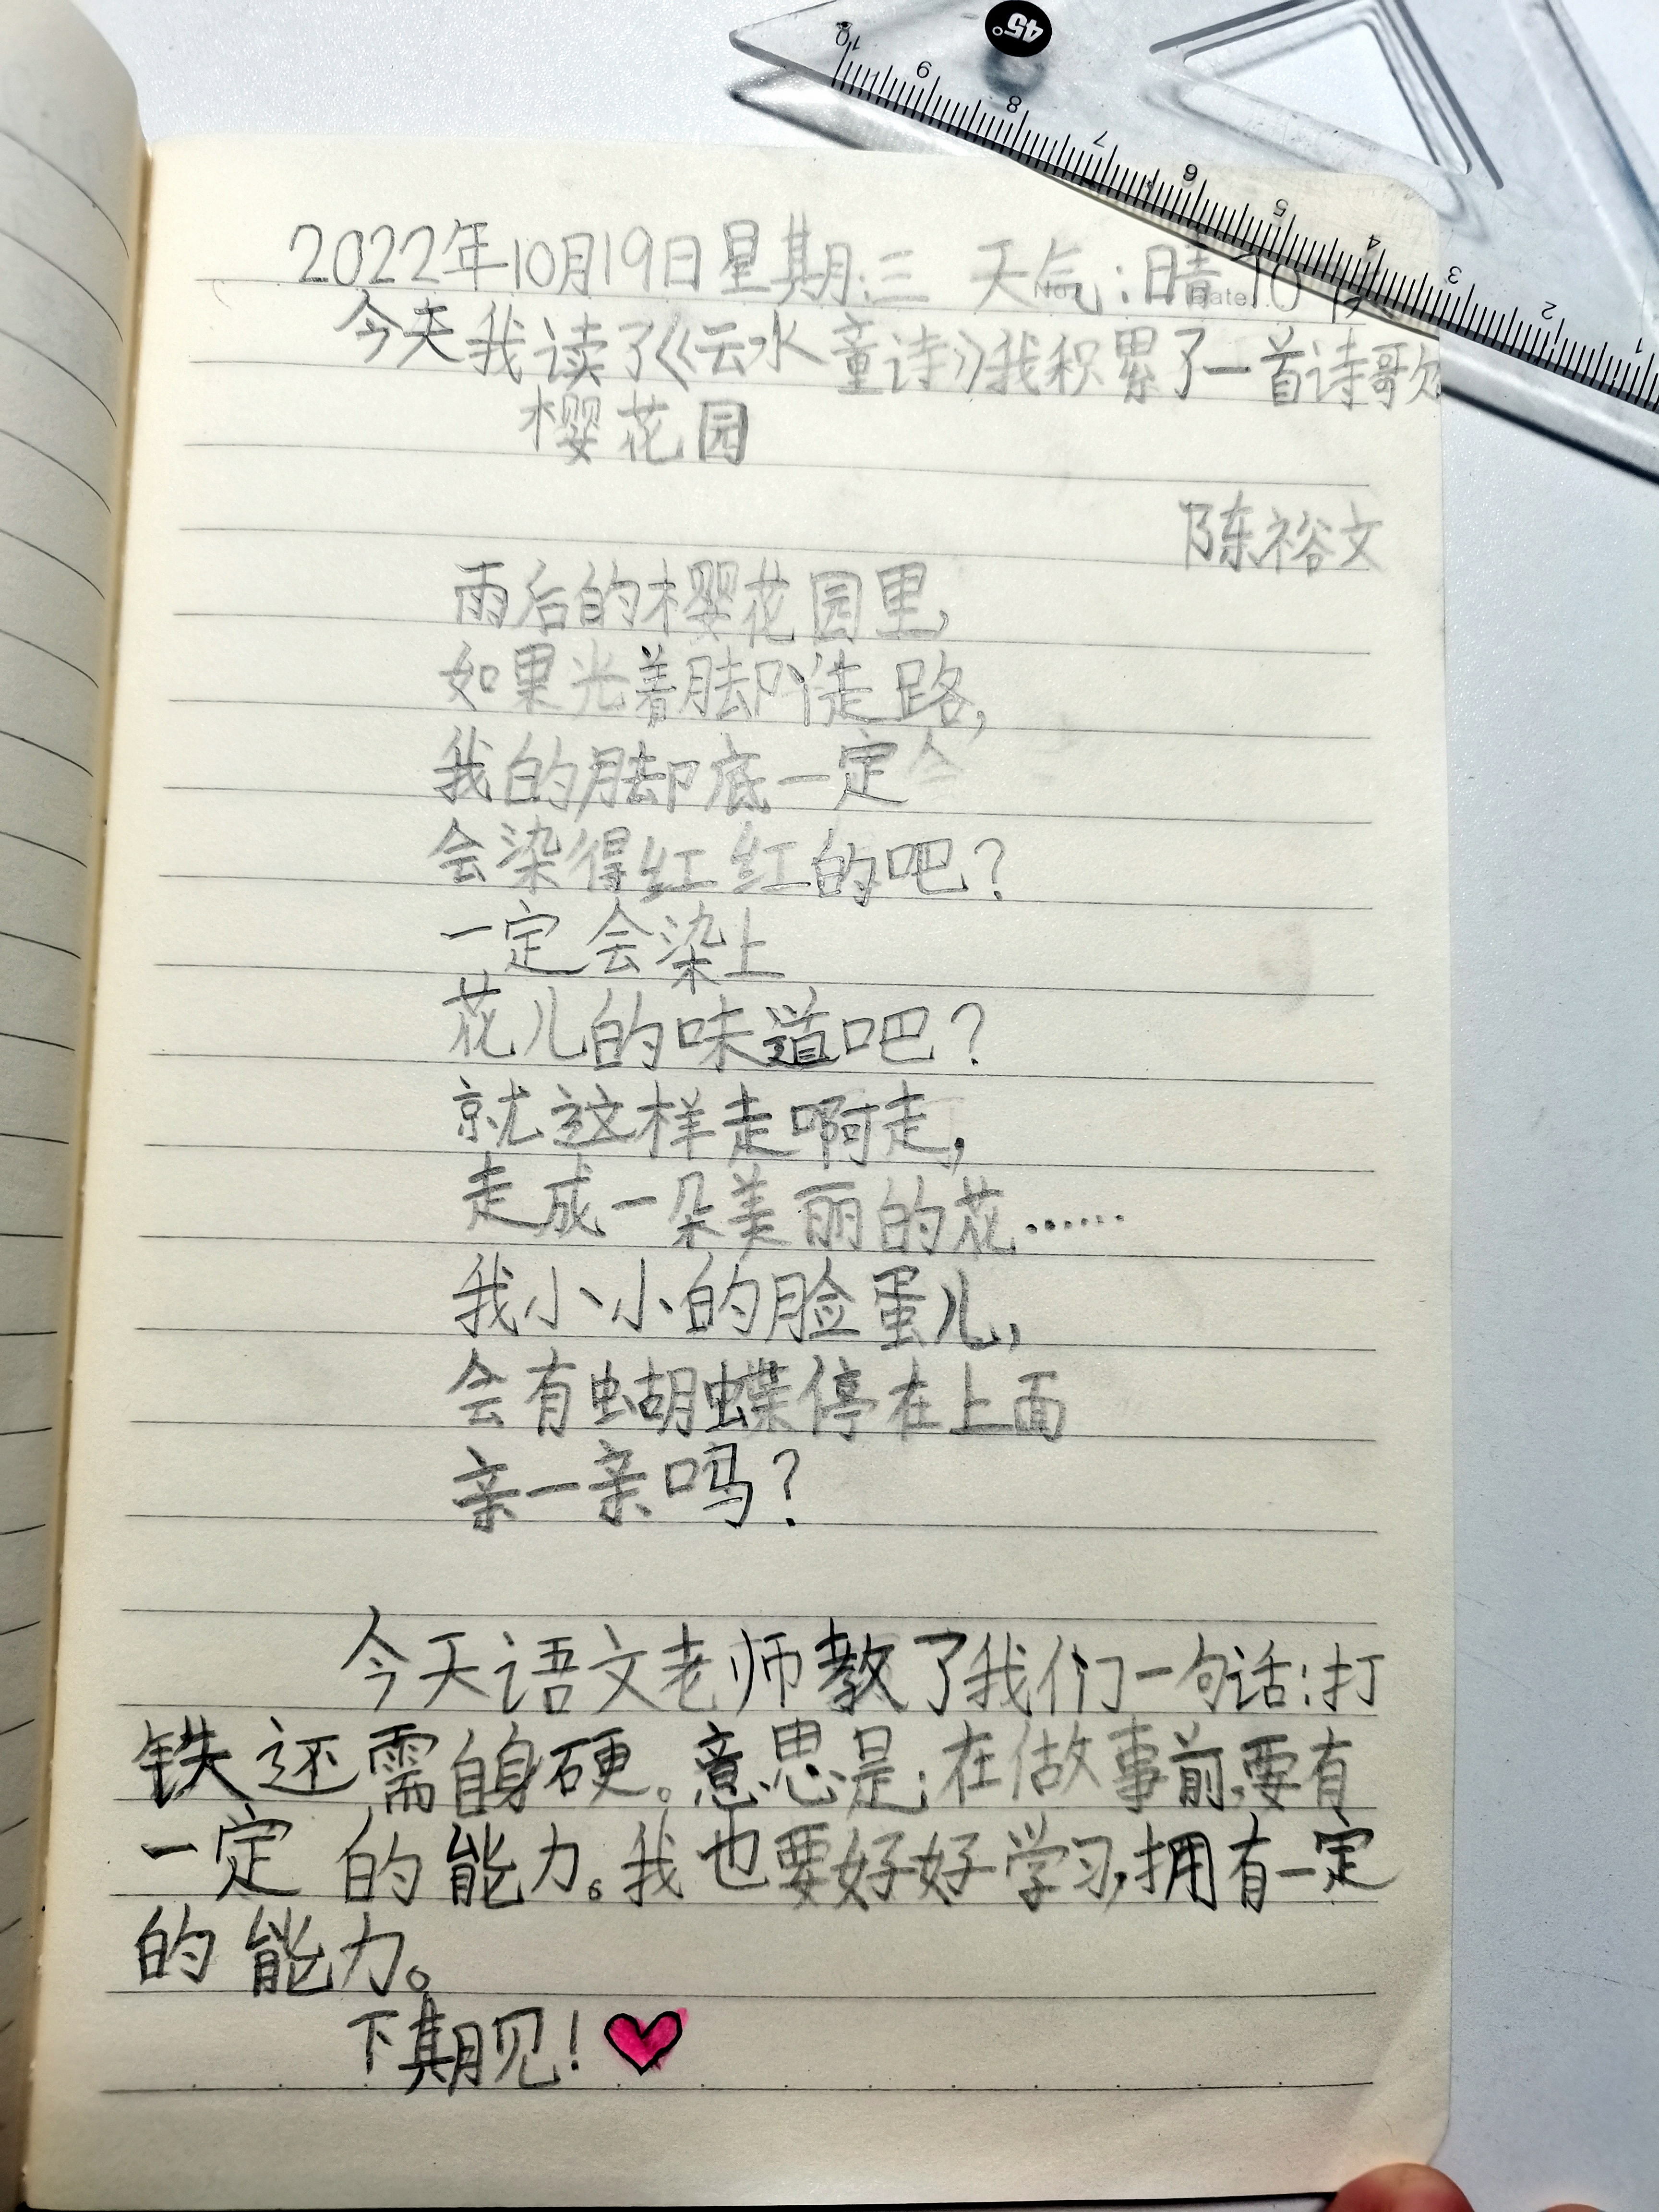 45°
10 9 8 7 6 5 4 3 2 1
2022年10月19日星期三 天气:晴10
今天我读了《云水童诗》我积累了一首诗歌
樱花园
陈裕文
雨后的樱花园里,
如果光着脚丫走路,
我的脚底一定
会染得红红的吧?
一定会染上
花儿的味道吧?
就这样走啊走,
走成一朵美丽的花……
我小小的脸蛋儿,
会有蝴蝶停在上面
亲一亲吗?
今天语文老师教了我们一句话:打
铁还需自身硬。意思是:在做事前,要有
一定的能力。我也要好好学习,拥有一定
的能力。
下期见!